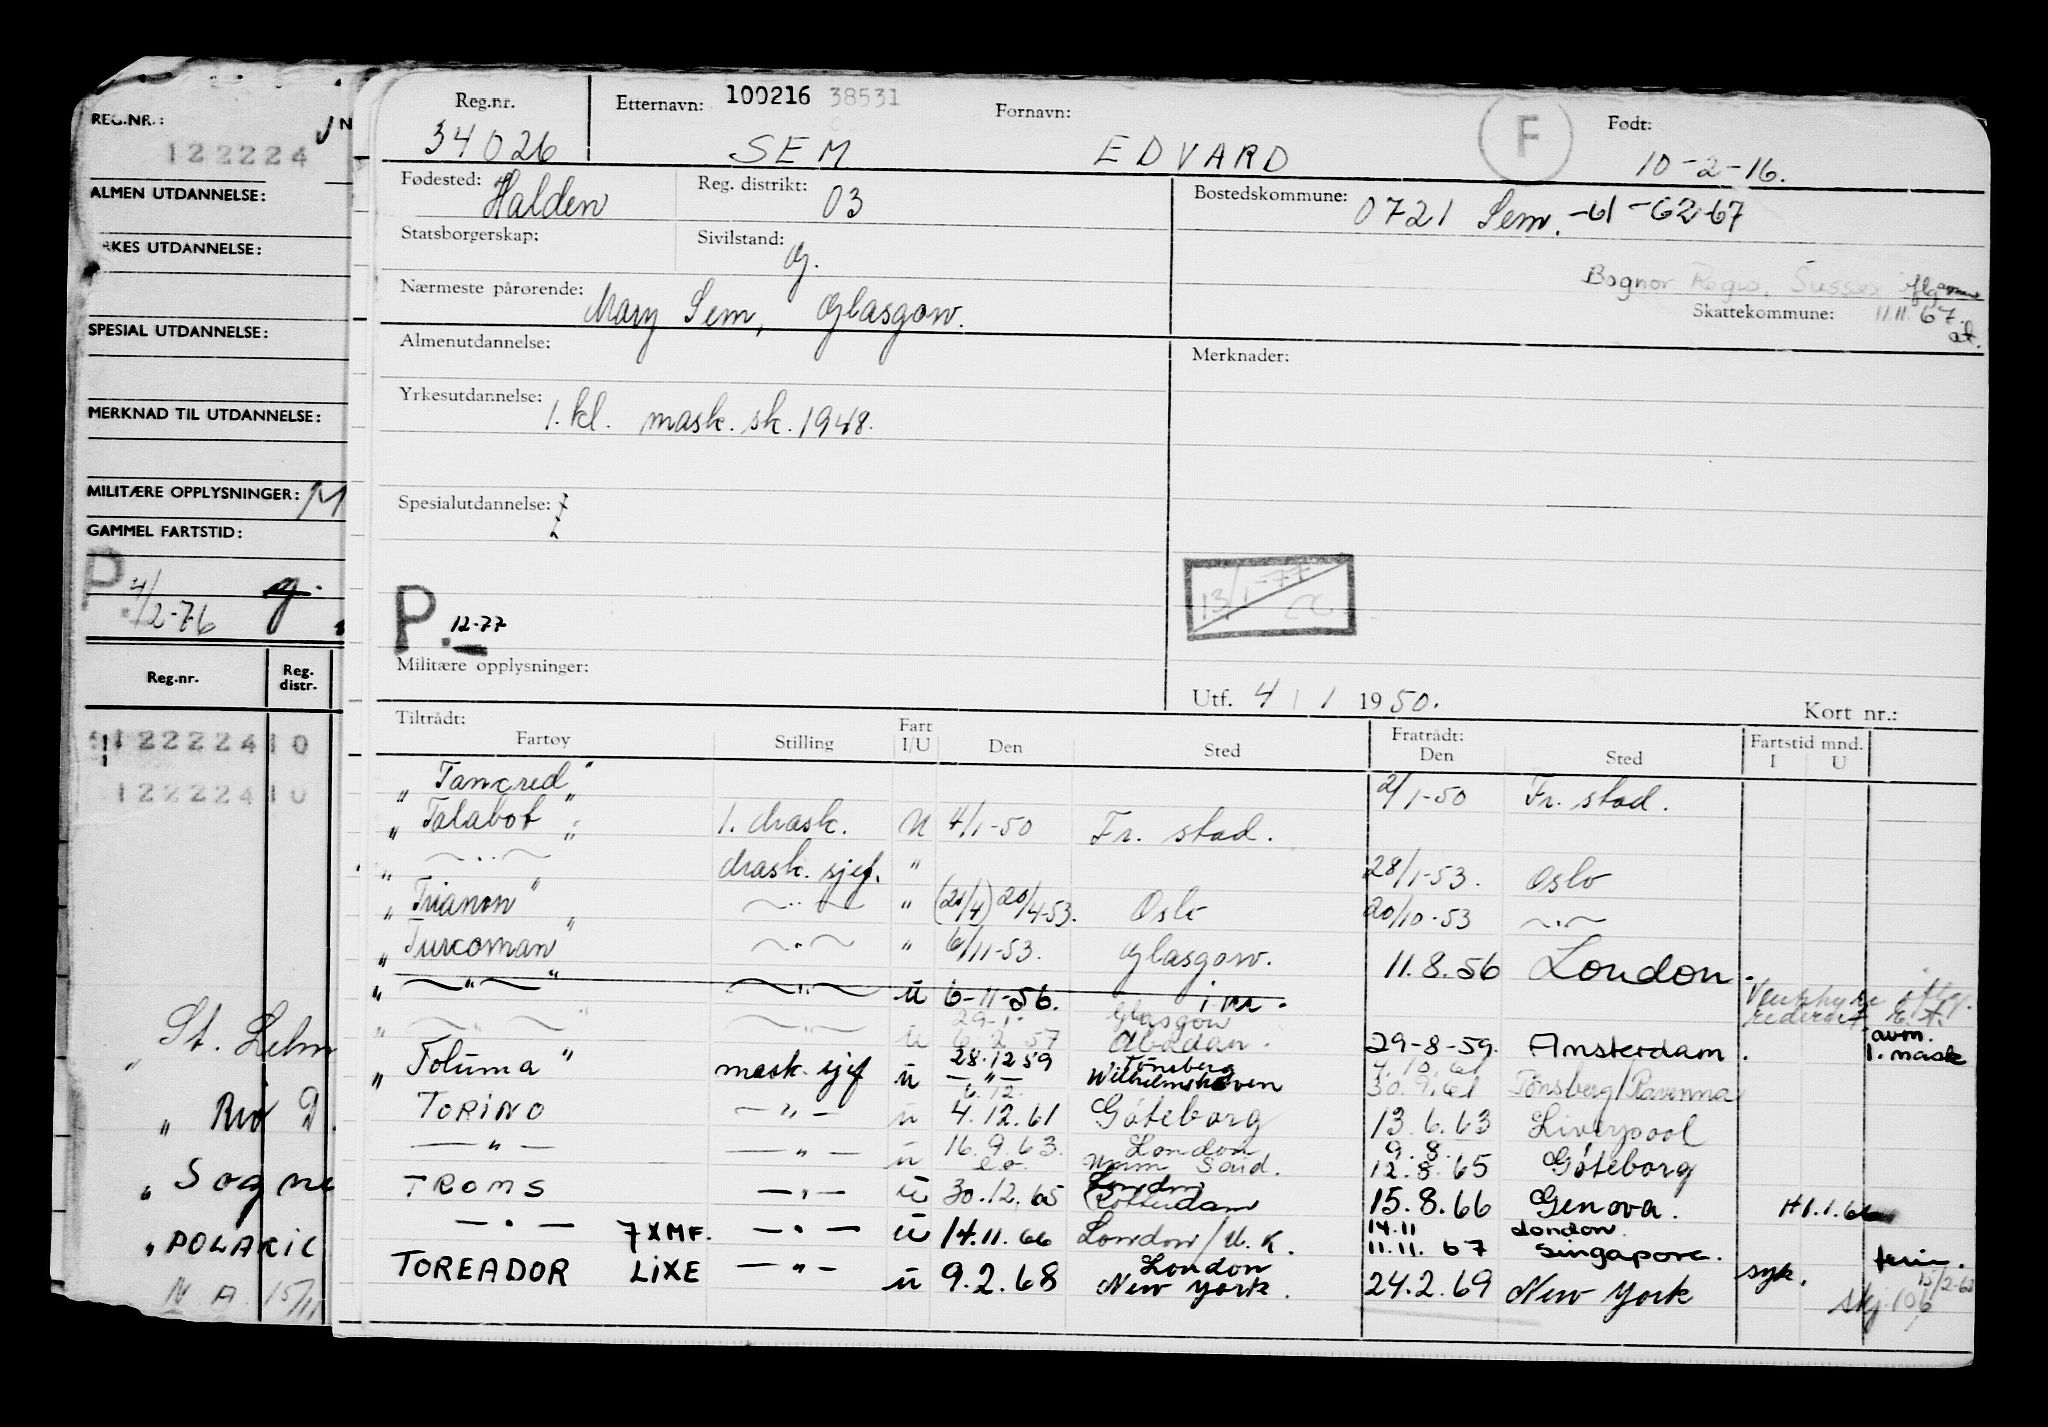 REG.NR.:
122224
ALMEN UTDANNELSE:
RKES UTDANNELSE:
SPESIAL UTDANNELSE:
MERKNAD TIL UTDANNELSE:
MILITÆRE OPPLYSNINGER: M
GAMMEL FARTSTID:
P. 4/2-76 g.
Reg.nr. Reg. distr.
122224 10
122224 10
" St. Helm
" Rio D
" Sogne
" POLARIC
N A. 15/11
Reg.nr. Etternavn: 100216 38531 Fornavn: F Født:
34026 SEM EDVARD 10-2-16.
Fødested: Halden Reg. distrikt: 03 Bostedskommune: 0721 Sem. -61 -62-67
Statsborgerskap: Sivilstand: g.
Bognor Regis, Sussex iflg
Nærmeste pårørende: Mary Sem, Glasgow. Skattekommune: 11.11.67.
Almenutdannelse: Merknader:
Yrkesutdannelse: 1. kl. mask. sk. 1948.
Spesialutdannelse:
13/1-77
P. 12-77
Militære opplysninger:
Utf. 4/1 1950. Kort nr.:
Tiltrådt: Fartøy Stilling Fart I/U Den Sted Fratrådt: Den Sted Fartstid mnd. I U
" Tancred" 2/1-50 Fr. stad.
" Talabot " 1. mask. U 4/1-50 Fr. stad.
" — " — mask. sjef. " 28/1-53. Oslo
" Trianon" — " — " (20/4) 20/4-53. Oslo 20/10-53 — " —
" Turcoman" — " — " 6/11-53. Glasgow. 11.8.56 London.
" — " — " — " — u 6-11-56. i nr.
29-1- Glasgow
" — " — " u 6.2.57 Abadan. 29-8-59. Amsterdam. avm. 1. mask
" Toluma " mask. sjef u 28.12 59 Tönsberg 7.10.61
— " — Wilhelmshaven 30.9.61 Tønsberg/Ravenna
TORINO — " — u 4.12.61 Göteborg 13.6.63 Liverpool
— " — — " — u 16.9.63. London 9.8.
12.8.65 Göteborg
TROMS — " — u 30.12.65 London Rotterdam 15.8.66 Genova.
— " — 7XMF. — " — u 14.11.66 London/U.K. 14.11 London
11.11.67 Singapore. ferie.
TOREADOR LIXE — " — u 9.2.68 London New York. 24.2.69 New York syk.
15/2-68
skj. 106